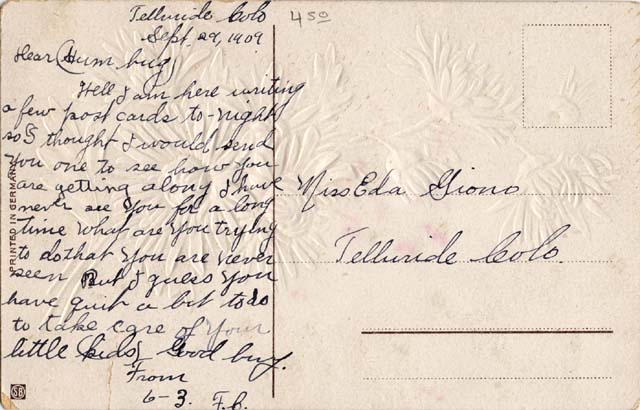 Telluride Colo
Sept. 29, 1909
Dear (Hum bug)
Well I am here writing
a few post cards to-night
so I thought I would send
you one to see how you
are getting along I have
never see you for a long
time what are you trying
to do that you are never
seen But I guess you
have quit a bit to do
to take care of your
little kids Good buy.
From
6-3. F.C.
450
Miss Eda Giono
Telluride Colo.
PRINTED IN GERMANY
SB